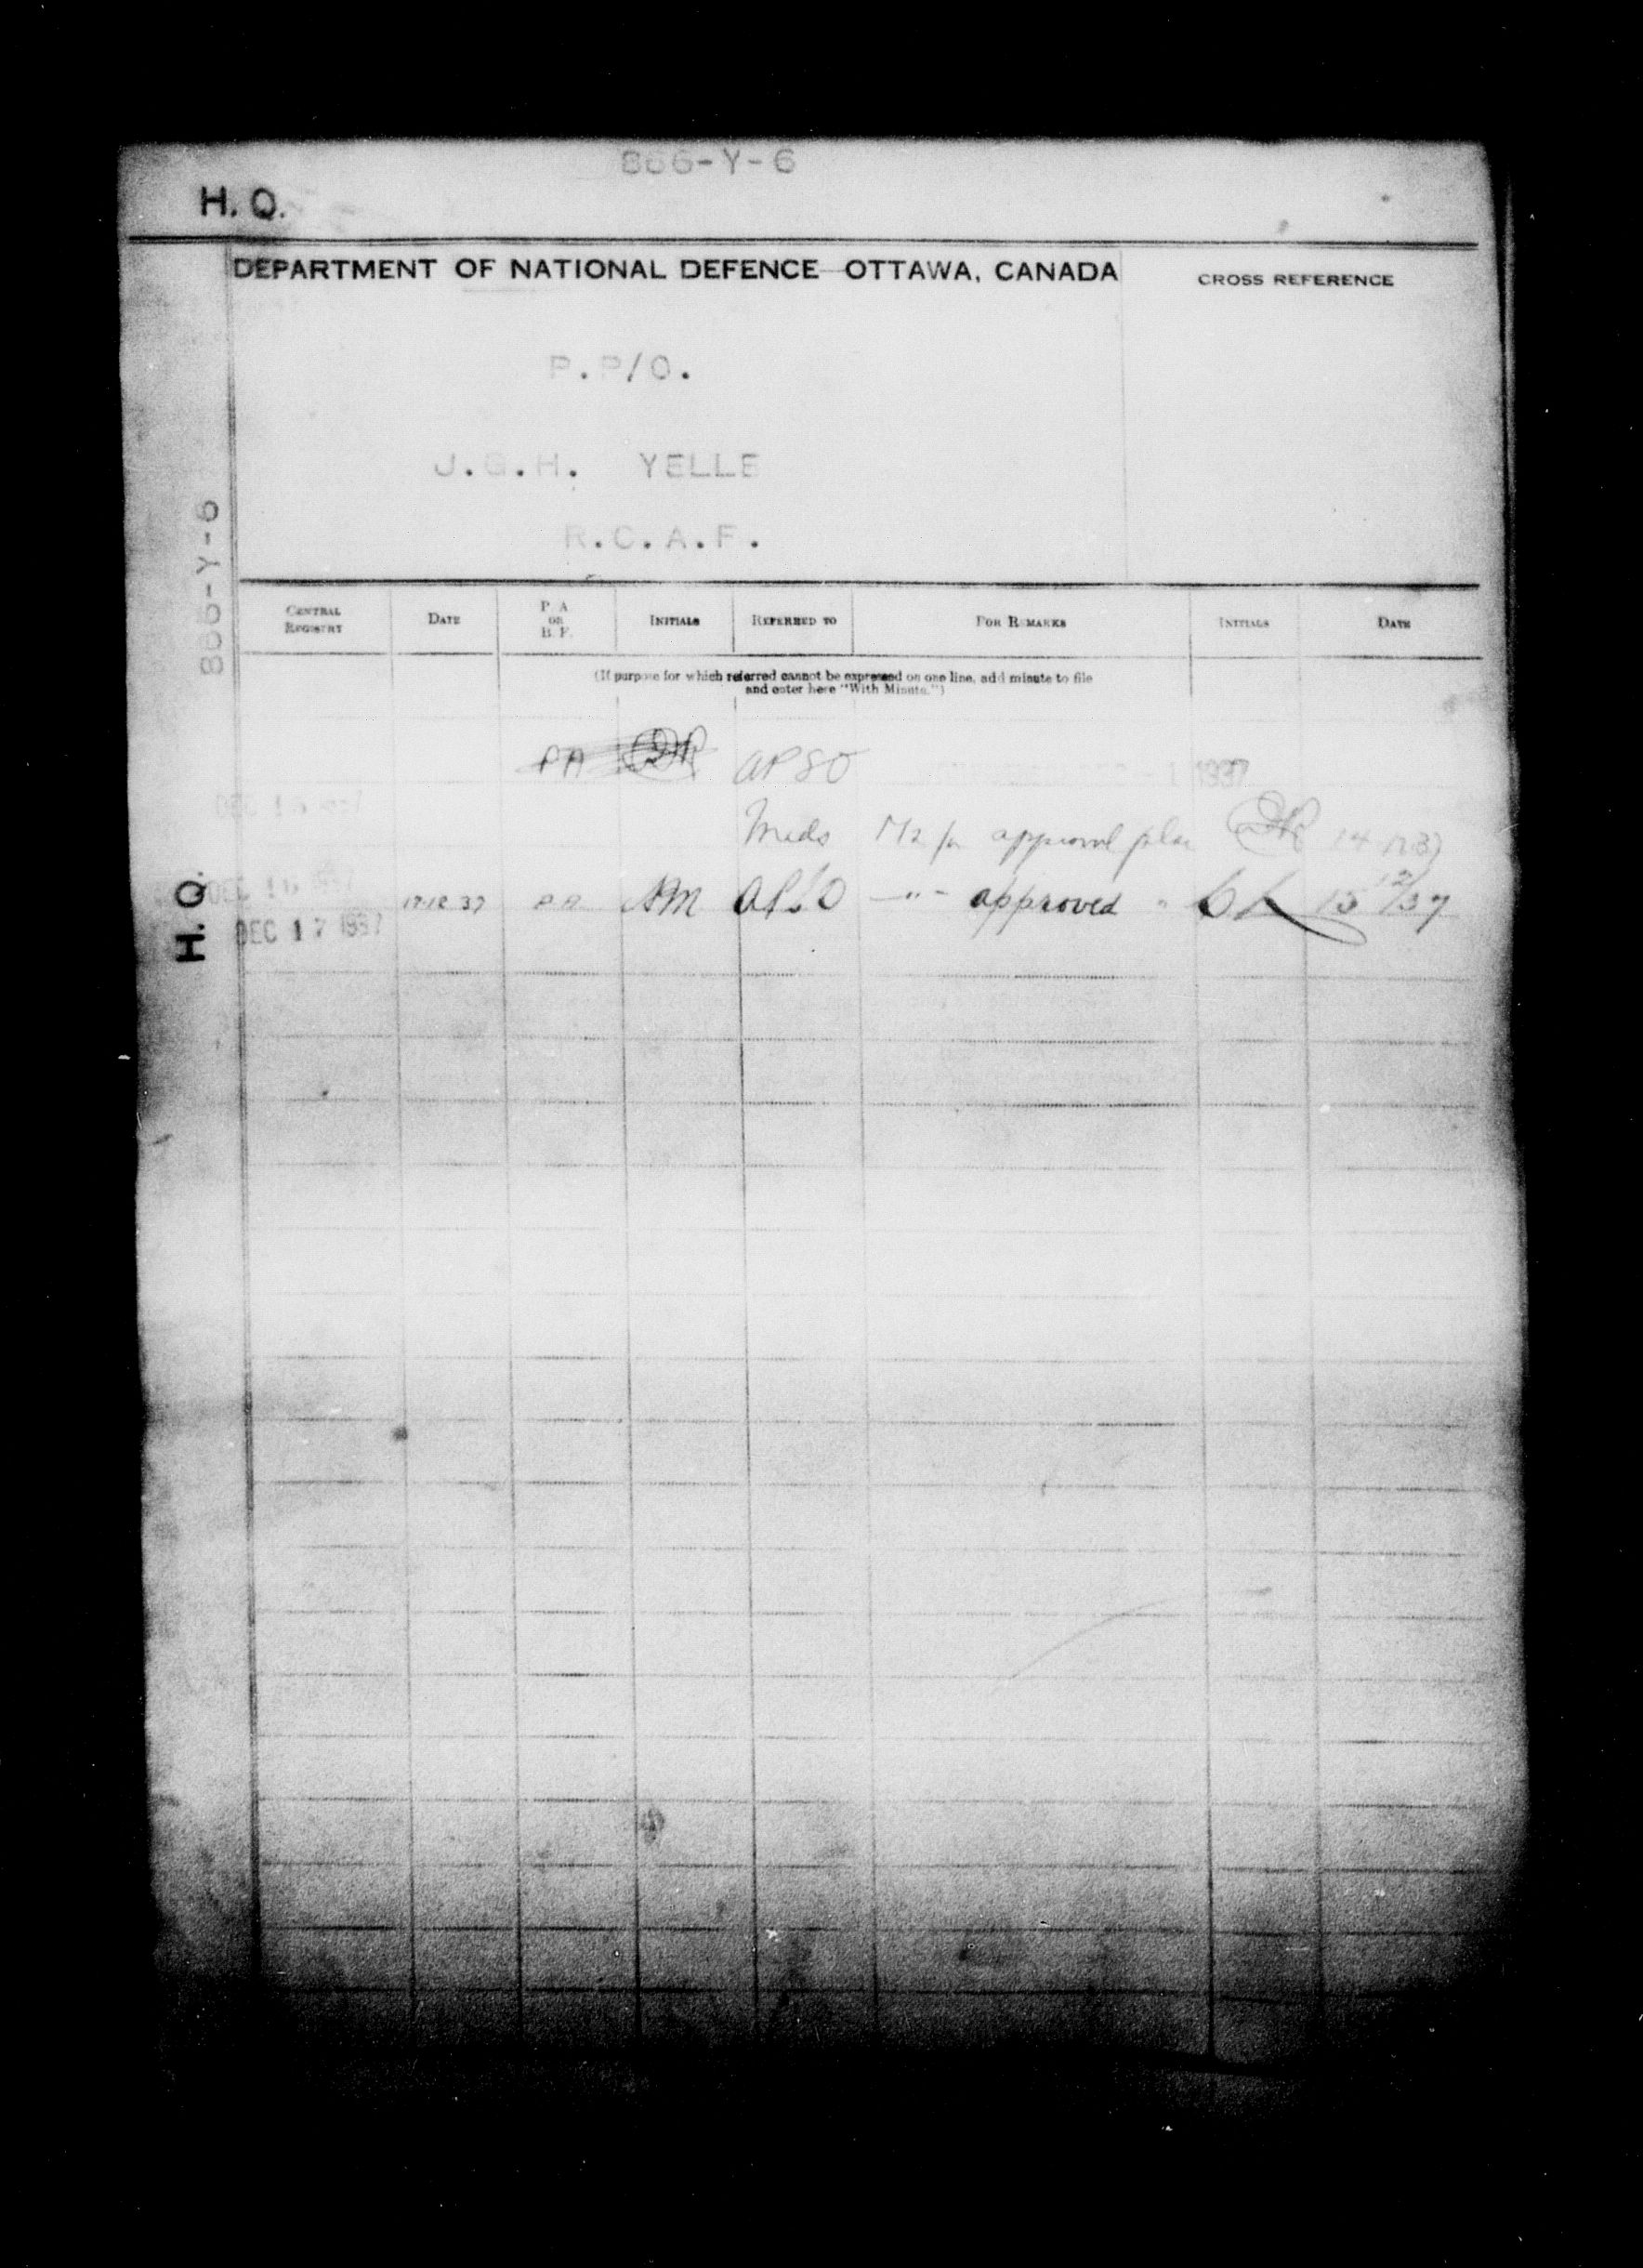 866-Y-6
H. Q.
DEPARTMENT OF NATIONAL DEFENCE OTTAWA, CANADA
CROSS REFERENCE
P.P/O.
J.G.H. YELLE
R.C.A.F.
866-Y-6
H. Q.
CENTRAL REGISTRY DATE P. A. OR B. F. INITIALS REFERRED TO FOR REMARKS INITIALS DATE
(If purpose for which referred cannot be expressed on one line, add minute to file
and enter here "With Minute.")
PA APSO 1937
DEC 1
Meds M2 for approval please 14
DEC 16 1937
17.12.37 PA AM APSO —"— approved " 15 12/37
DEC 17 1937